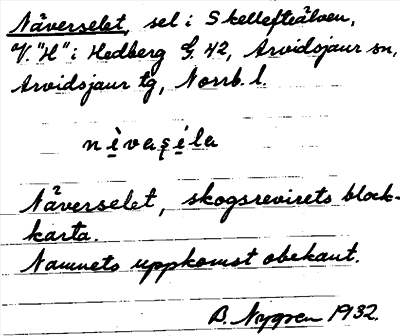 Näverselet, sel i Skellefteälven,
V. "H" i Hedberg G. 42, Arvidsjaur sn,
Arvidsjaur tg, Norrb. l.
nèvasẹ́la
Näverselet, skogsrevirets block-
karta.
Namnets uppkomst obekant.
B. Nygren 1932.